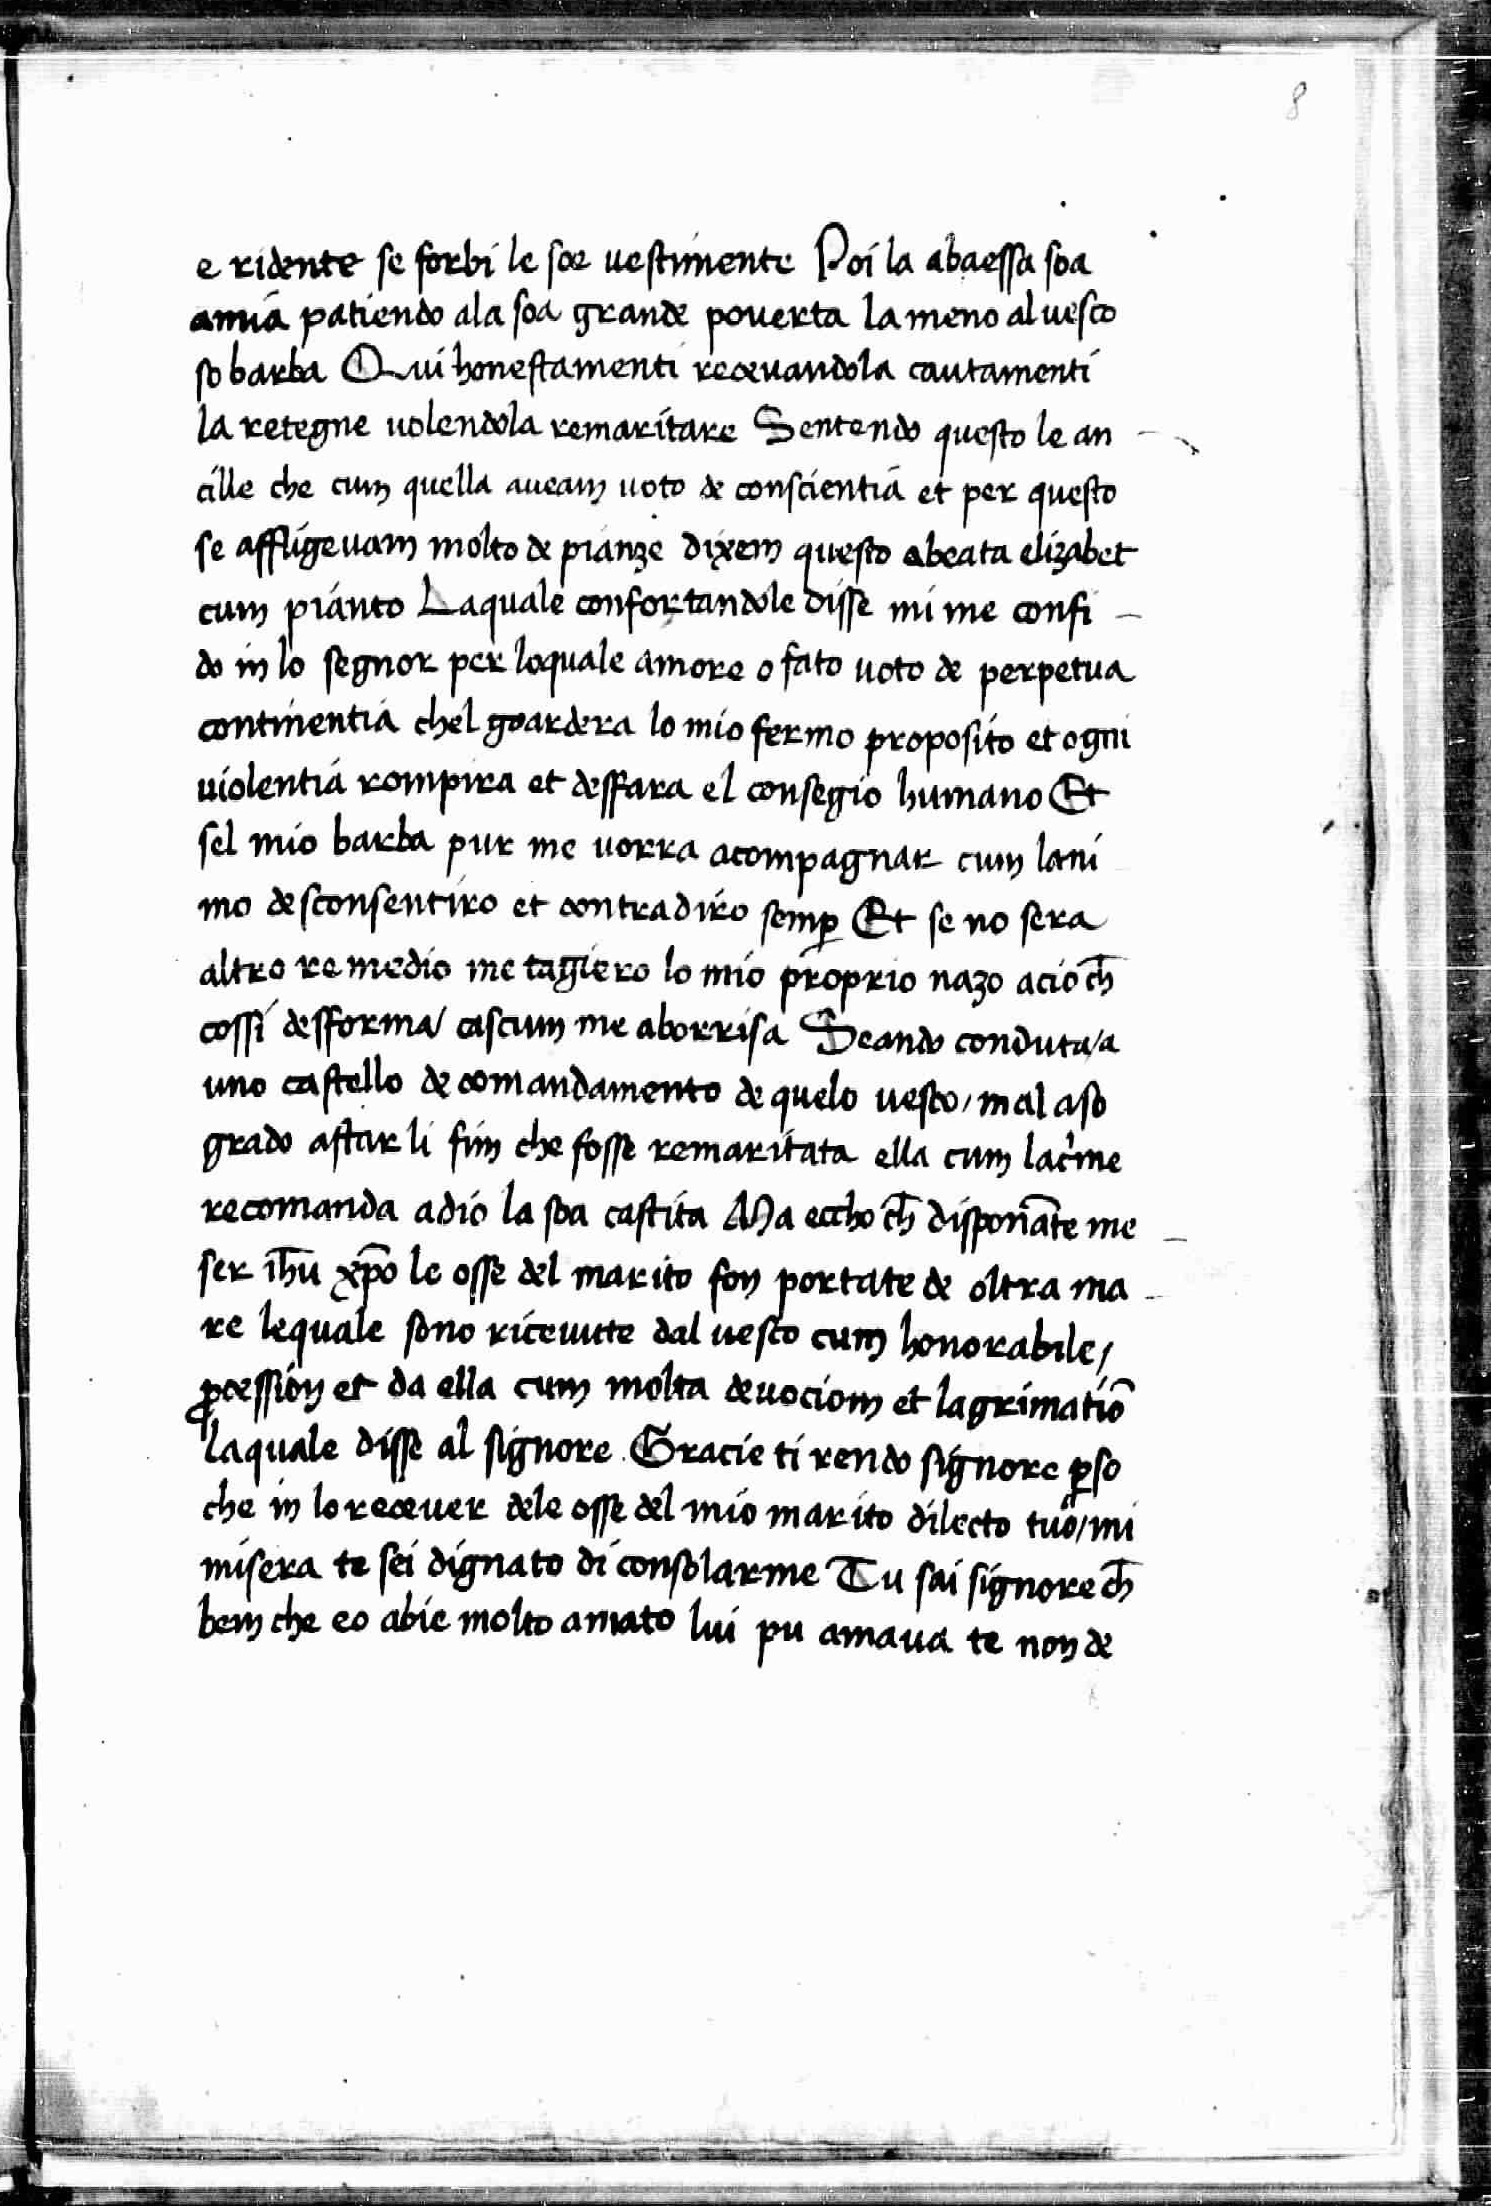 8
e ridente se forbi le soe uestimente Poi la abaessa soa
amia patiendo ala soa grande pouerta la meno al uesco
so barba Qui honestamenti receuandola cautamenti
la retegne uolendola remaritare Sentendo questo le an
cille che cum quella aueam uoto de conscientia et per questo
se affligeuam molto de pianze dixem questo abeata elizabet
cum pianto Laquale confortandole disse mi me confi
do in lo segnor per loquale amore o fato uoto de perpetua
continentia chel goardera lo mio fermo proposito et ogni
uiolentia rompira et desfara el consegio humano Et
sel mio barba pur me uorra acompagnar cum lani
mo desconsentiro et contradiro semꝑ Et se no sera
altro remedio me tagiero lo mio proprio nazo acio ch̄
cossi desforma/ cascum me aborrisa Seando conduta/a
uno castello de comandamento de quelo uesco/mal aso
grado astar li fim che fosse remaritata ella cum lacrime
recomanda adio la soa castita Ma eccho ch̄ disponāte me
ser ih̄u xp̄o le osse del marito fon portate de oltra ma
re lequale sono riceuute dal uesco cum honorabile/
ꝓcession et da ella cum molta deuociom et lagrimatiō
laquale disse al signore Gracie ti rendo signore ꝑso
che in lo receuer dele osse del mio marito dilecto tuo/mi
misera te sei dignato di consolarme Tu sai signore ch̄
bem che eo abie molto amato lui pu amaua te non de